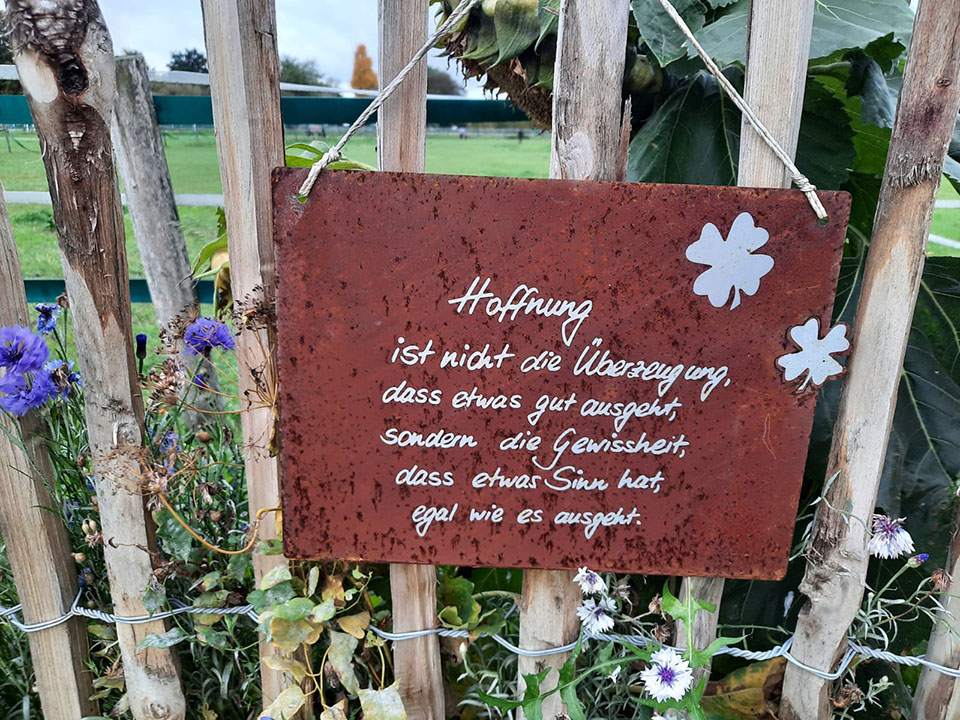 Hoffnung
ist nicht die Überzeugung,
dass etwas gut ausgeht,
sondern die Gewissheit,
dass etwas Sinn hat,
egal wie es ausgeht.